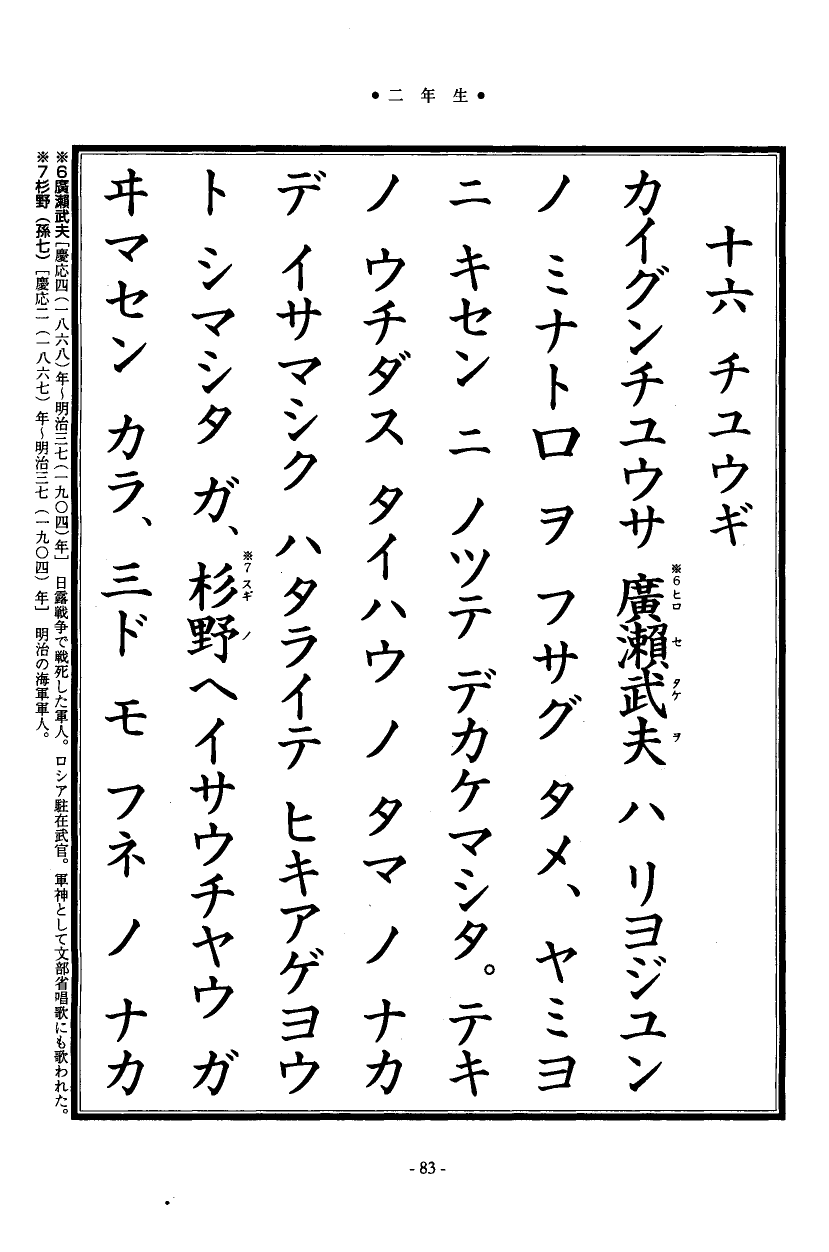 ● 二年生 ●
十六 チユウギ
カイグンチユウサ 廣瀨武夫 ハ リヨジユン
※6 ヒロ セ タケ ヲ
ノ ミナトロ ヲ フサグ タメ、ヤミヨ
ニ キセン ニ ノツテ デカケマシタ。テキ
ノ ウチダス タイハウ ノ タマ ノ ナカ
デ イサマシク ハタライテ ヒキアゲヨウ
ト シマシタ ガ、杉野ヘイサウチヤウ ガ
※7 スギ ノ
ヰマセン カラ、三ド モ フネ ノ ナカ
※6廣瀬武夫[慶応四(一八六八)年~明治三七(一九〇四)年] 日露戦争で戦死した軍人。ロシア駐在武官。軍神として文部省唱歌にも歌われた。
※7杉野(孫七)[慶応二(一八六七)年~明治三七(一九〇四)年] 明治の海軍軍人。
- 83 -